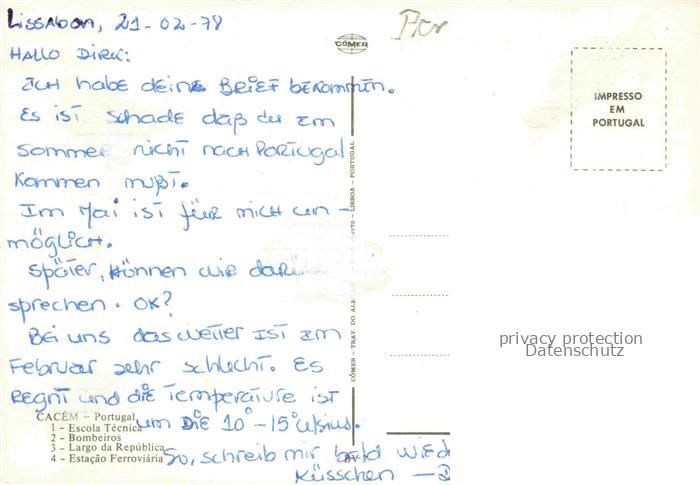 Lissabon, 21-02-78
HALLO DIRK:
Ich habe deine BRIEF bekommen.
Es ist schade daß du im
Sommer nicht nach Portugal
kommen mußt.
Im Mai ist für mich un-
möglich.
Später, können wir
sprechen. OK?
Bei uns das wetter ist im
Februar sehr schlecht. Es
regnt und die Temperature ist
um die 10°-15° celsius.
So, schreib mir bald wied
Küsschen - D
CACÉM - Portugal
1 - Escola Técnica
2 - Bombeiros
3 - Largo da República
4 - Estação Ferroviária
CÓMER
CÓMER - TRAV. DO - LISBOA - PORTUGAL
IMPRESSO
EM
PORTUGAL
privacy protection
Datenschutz